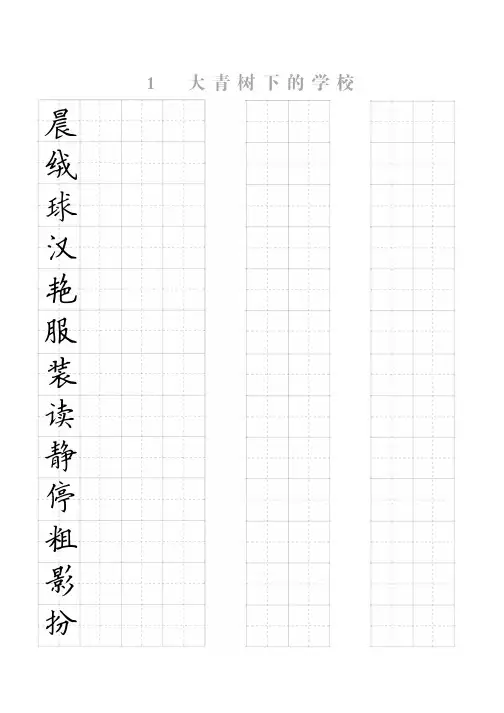 1 大青树下的学校
晨
绒
球
汉
艳
服
装
读
静
停
粗
影
扮